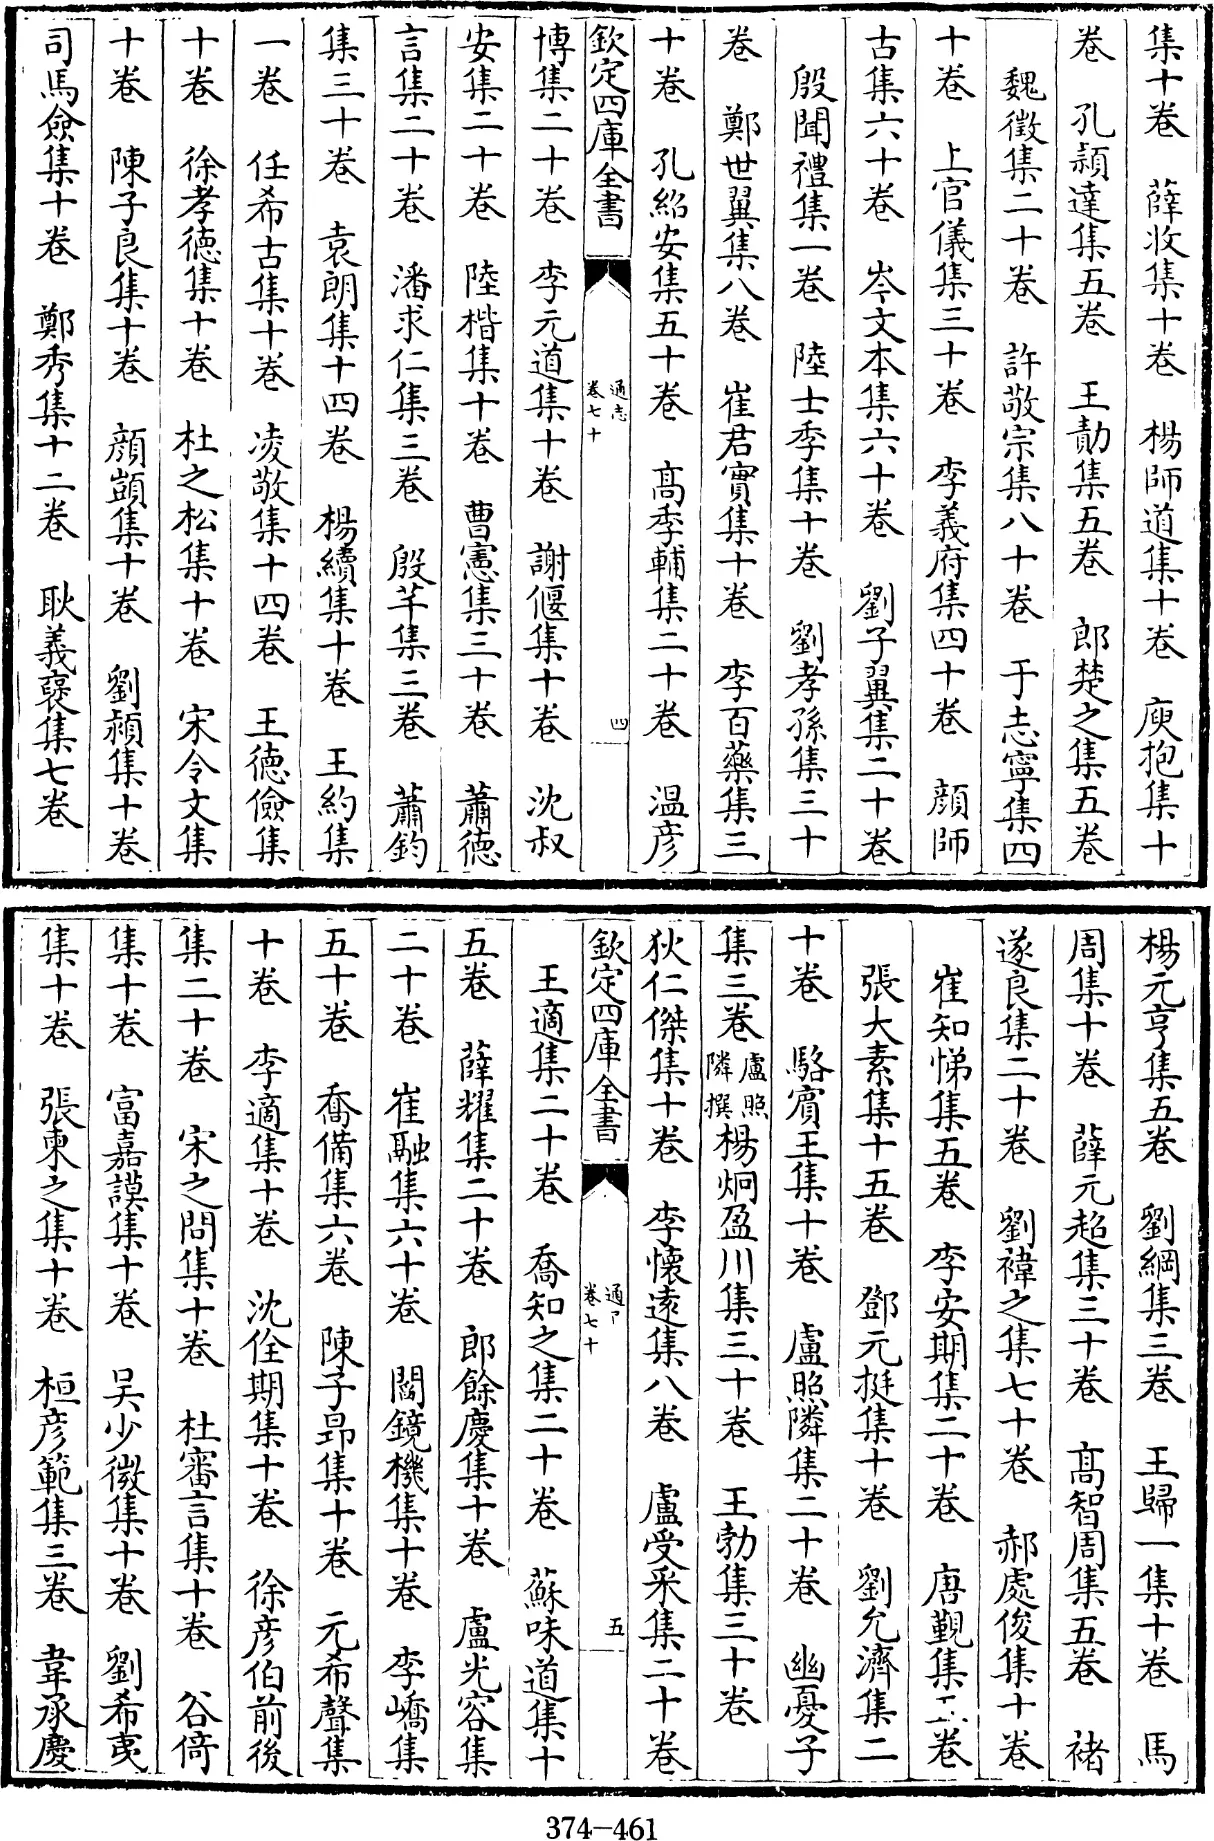 集十卷　薛收集十卷　楊師道集十卷　庾抱集十
卷　孔潁達集五卷　王勣集五卷　郎楚之集五卷
魏徵集二十卷　許敬宗集八十卷　于志寧集四
十卷　上官儀集三十卷　李義府集四十卷　顔師
古集六十卷　岑文本集六十卷　劉子翼集二十卷
殷聞禮集一卷　陸士季集十卷　劉孝孫集三十
卷　鄭世翼集八卷　崔君實集十卷　李百藥集三
十卷　孔紹安集五十卷　髙季輔集二十卷　温彦
欽定四庫全書　通志卷七十　四
博集二十卷　李元道集十卷　謝偃集十卷　沈叔
安集二十卷　陸楷集十卷　曹憲集三十卷　蕭德
言集二十卷　潘求仁集三卷　殷芊集三卷　蕭鈞
集三十卷　袁朗集十四卷　楊續集十卷　王約集
一卷　任希古集十卷　凌敬集十四卷　王德儉集
十卷　徐孝德集十卷　杜之松集十卷　宋令文集
十卷　陳子良集十卷　顔顗集十卷　劉潁集十卷
司馬僉集十卷　鄭秀集十二卷　耿義襃集七卷
楊元亨集五卷　劉綱集三卷　王歸一集十卷　馬
周集十卷　薛元超集三十卷　髙智周集五卷　褚
遂良集二十卷　劉禕之集七十卷　郝處俊集十卷
崔知悌集五卷　李安期集二十卷　唐覲集五卷
張大素集十五卷　鄧元挺集十卷　劉允濟集二
十卷　駱賓王集十卷　盧照隣集二十卷　幽憂子
集三卷盧照隣撰楊炯盈川集三十卷　王勃集三十卷
狄仁傑集十卷　李懷逺集八卷　盧受采集二十卷
欽定四庫全書　通　卷七十　五
王適集二十卷　喬知之集二十卷　蘇味道集十
五卷　薛耀集二十卷　郎餘慶集十卷　盧光容集
二十卷　崔融集六十卷　閻鏡機集十卷　李嶠集
五十卷　喬備集六卷　陳子昻集十卷　元希聲集
十卷　李適集十卷　沈佺期集十卷　徐彦伯前後
集二十卷　宋之問集十卷　杜審言集十卷　谷倚
集十卷　富嘉謨集十卷　吴少微集十卷　劉希夷
集十卷　張柬之集十卷　桓彦範集三卷　韋承慶
374-461